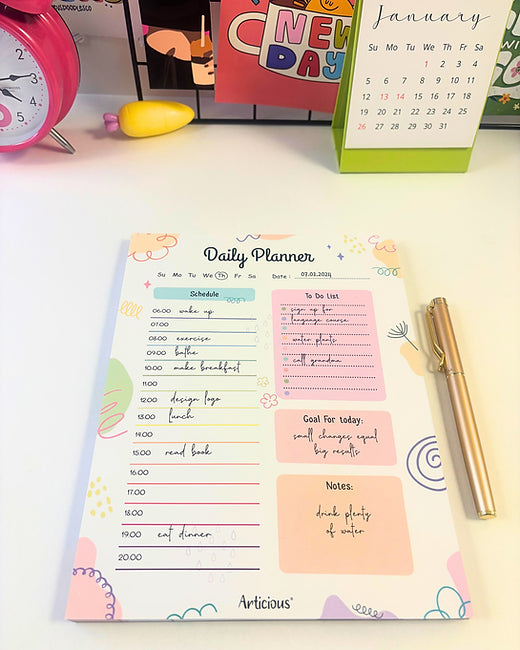 NEW
DAY
January
Su Mo Tu We Th Fr Sa
1 2 3 4
5 6 7 8 9 10 11
12 13 14 15 16 17 18
19 20 21 22 23 24 25
26 27 28 29 30 31
2
3
4
5
Daily Planner
Su Mo Tu We Th Fr Sa Date: 07.03.2024
Schedule
06:00 wake up
07:00
08:00 exercise
09:00 bathe
10:00 make breakfast
11:00
12:00 design logo
13:00 lunch
14:00
15:00 read book
16:00
17:00
18:00
19:00 eat dinner
20:00
To Do List
sign up for
language course
water plants
call grandma
Goal For today:
small changes equal
big results
Notes:
drink plenty
of water
Articious®